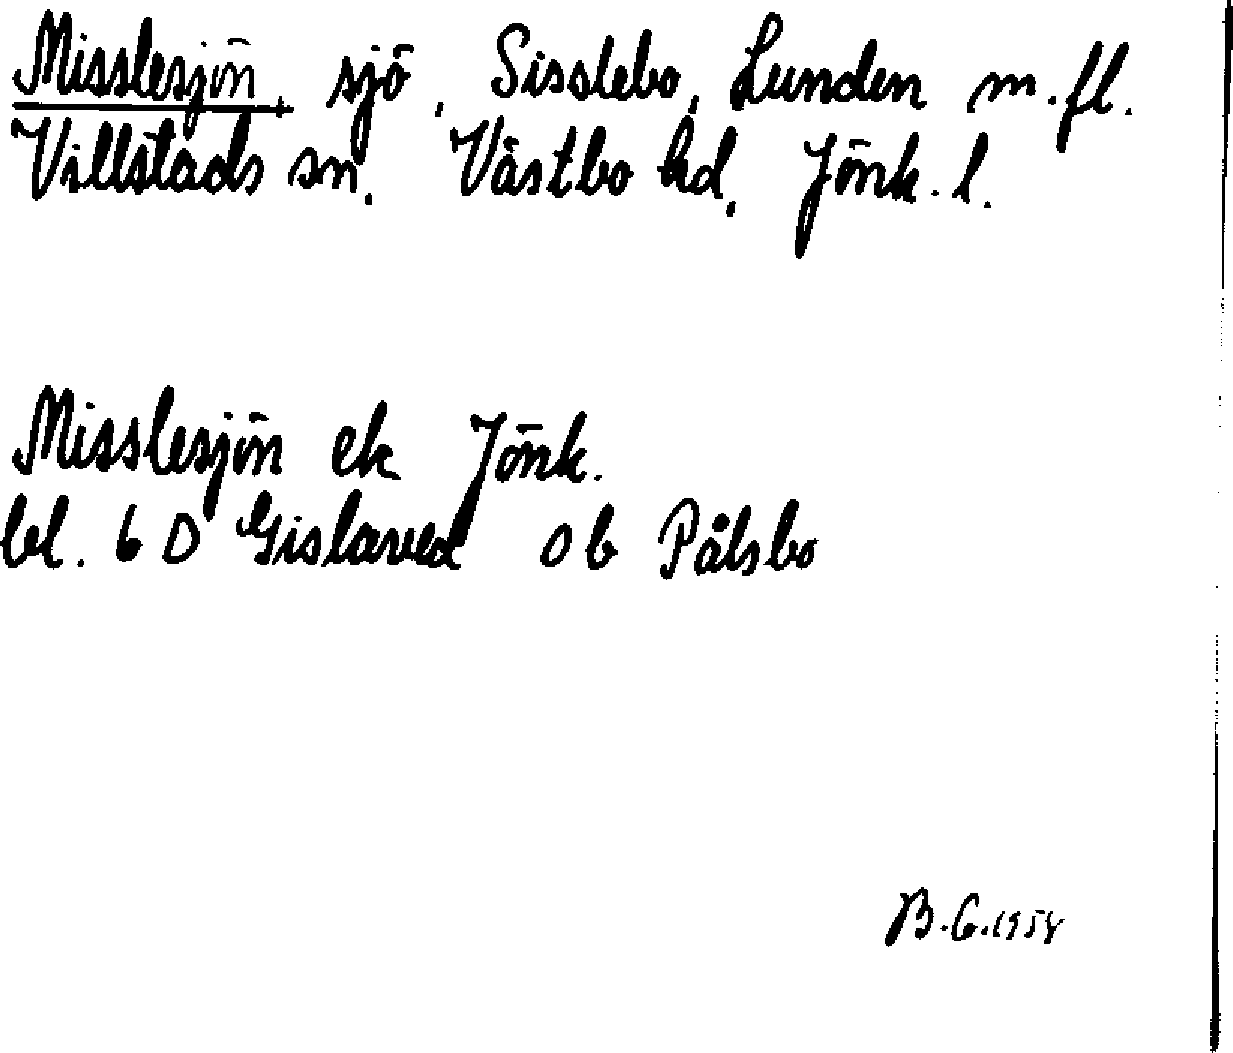 Misslesjön, sjö, Sisslebo, Lunden m.fl.
Villstads sn, Västbo hd, Jönk. l.
Misslesjön ek Jönk.
bl. 6 D Gislaved ob Pålsbo
B.G.1958